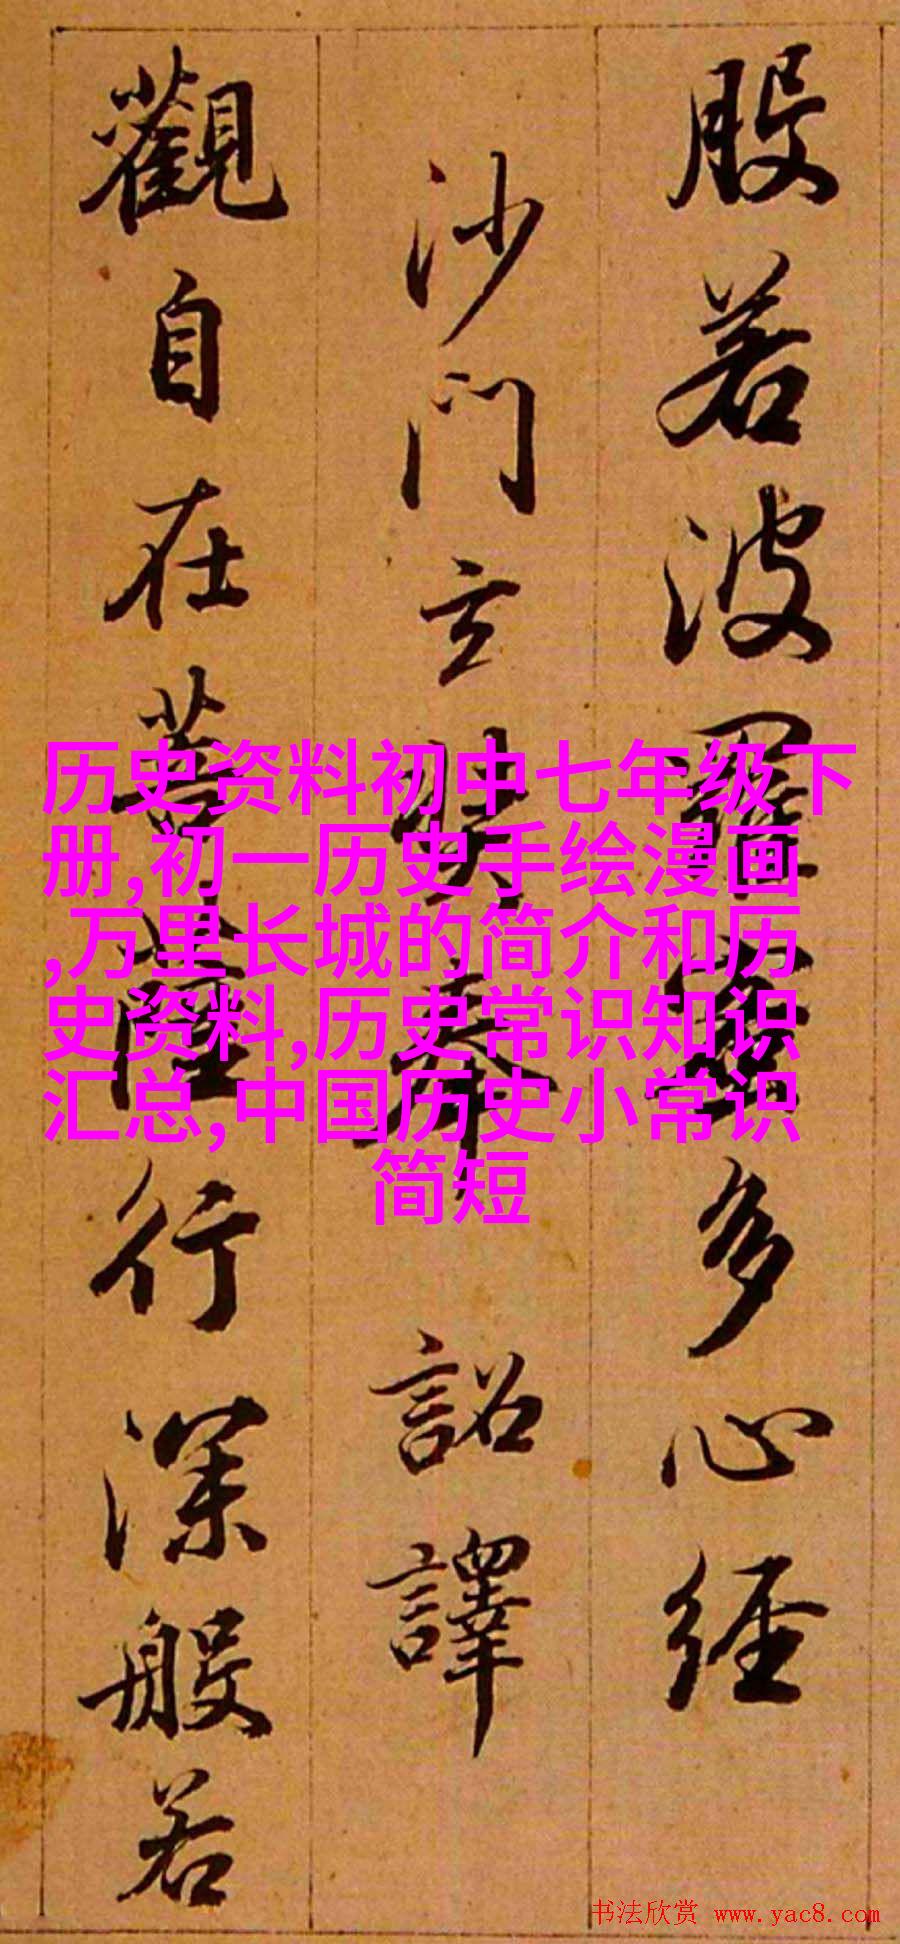 般若波羅蜜多心经
沙門玄奘奉 詔譯
觀自在菩薩行深般若
历史资料初中七年级下
册,初一历史手绘漫画
,万里长城的简介和历
史资料,历史常识知识
汇总,中国历史小常识
简短
书法欣赏 www.yac8.com